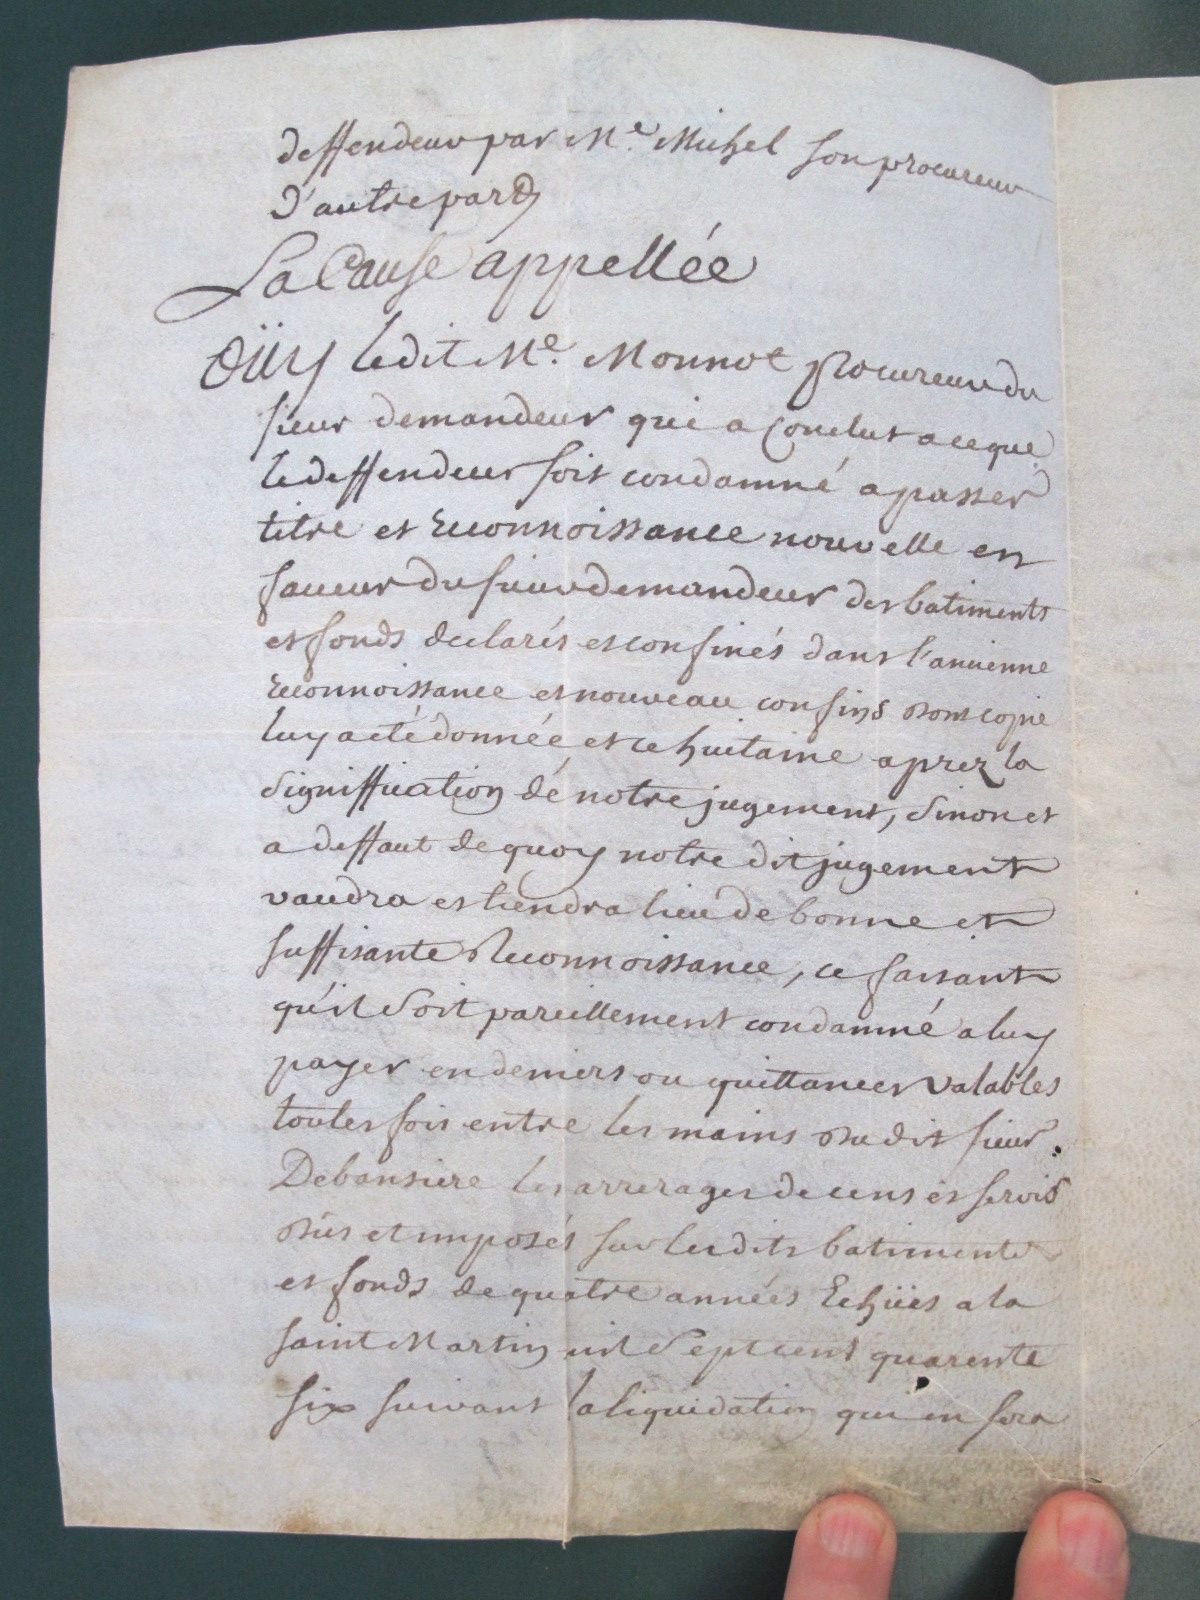 deffendeur par Me. Michel son procureur
d'autre part
La Cause appellée
Oüy ledit Me. Monnot procureur du
sieur demandeur qui a Conclut a ceque
le deffendeur soit condamné a passer
titre et reconnoissance nouvelle en
faveur du sieur demandeur des batiments
et fonds declarés et confinés dans l'ancienne
reconnoissance et nouveau confins dont copie
luy a eté donnée et ce huitaine aprez la
Signiffication dé notre jugement, Sinon et
a deffaut de quoy notre dit jugement
vaudra et tiendra lieu de bonne et
suffisante Reconnoissance, ce faisant
qu'il Soit pareillement condamné a luy
payer en deniers ou quittances valables
toutes fois entre les mains du dit sieur
Debansiere les arrerages de cens et servis
dûs et imposés sur lesdits batiments
et fonds de quatre années Echües a la
saint Martin mil Sept cent quarente
six suivant la liquidation qui en sera